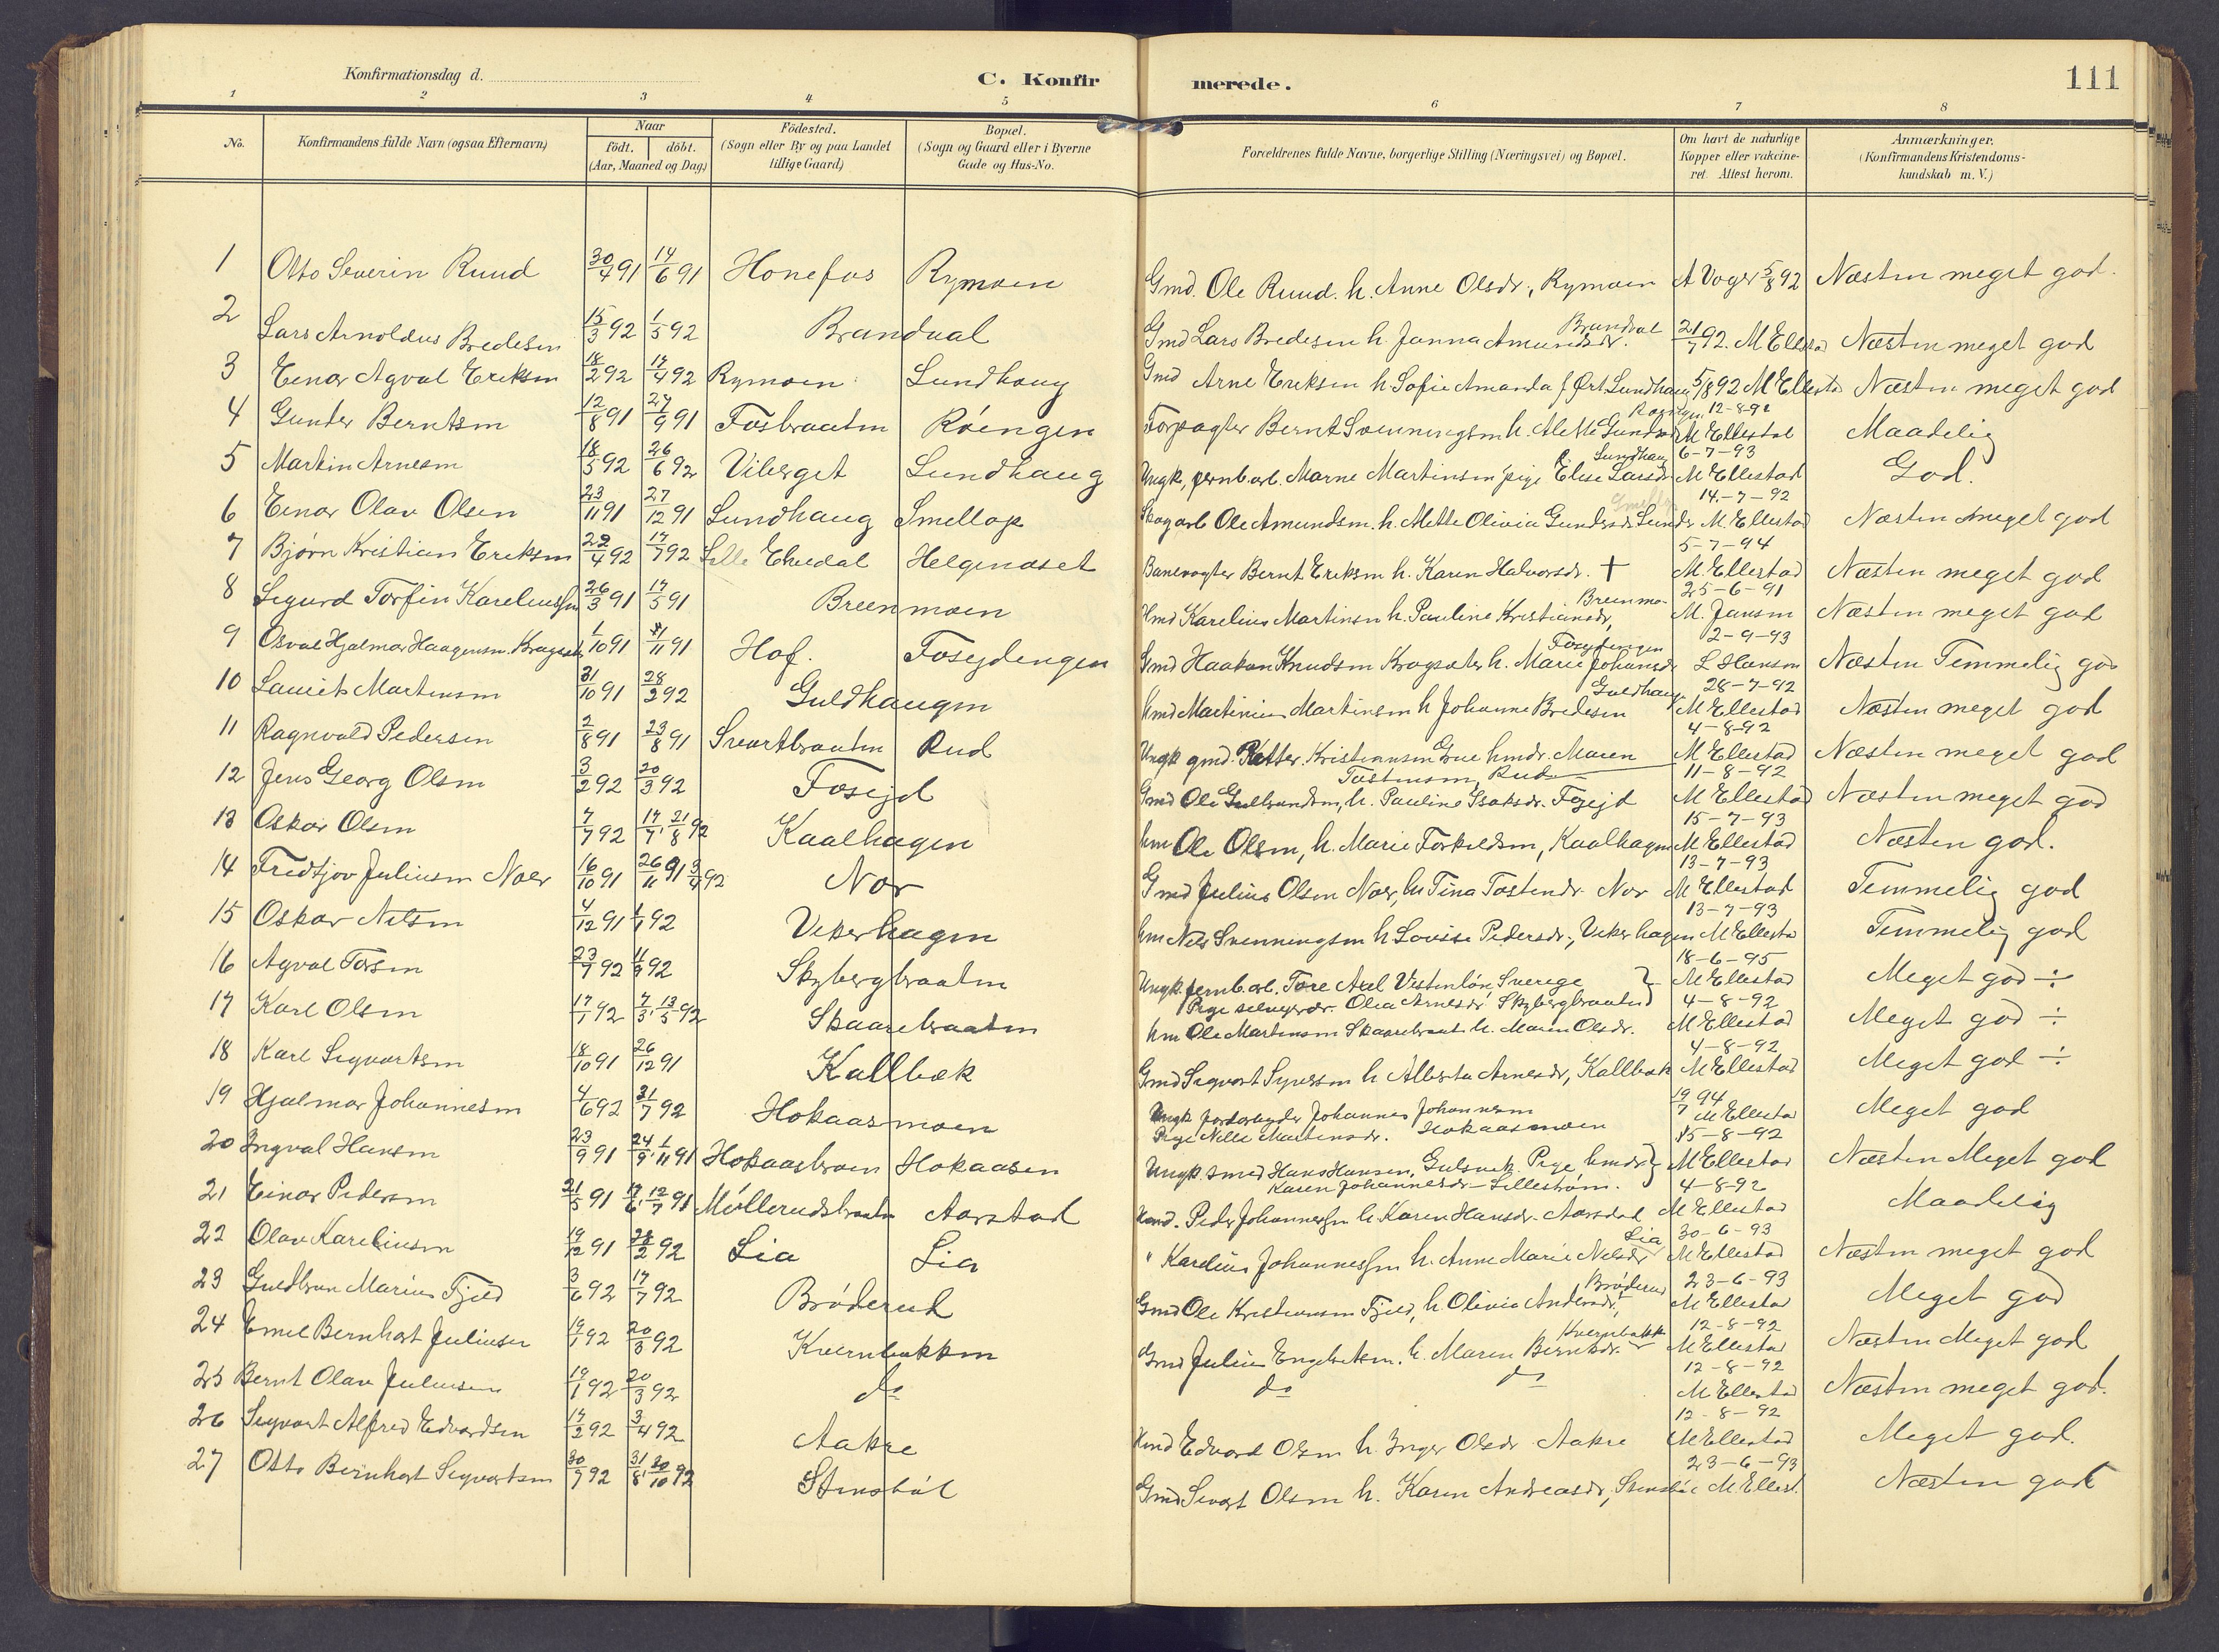 Konfirmationsdag d.
C. Konfirmerede.
111
1 2 3 4 5 6 7 8
No.
Konfirmandens fulde Navn (ogsaa Efternavn)
Naar
födt. döbt.
(Aar, Maaned og Dag)
Födested.
(Sogn eller By og paa Landet
tillige Gaard)
Bopæl.
(Sogn og Gaard eller i Byerne
Gade og Hus-No.
Forældrenes fulde Navne, borgerlige Stilling (Næringsvei) og Bopæl.
Om havt de naturlige
Kopper eller vakcine-
ret. Attest herom.
Anmærkninger.
(Konfirmandens Kristendoms-
kundskab m. V.)
1 Otto Severin Ruud 30/4 91 14/6 91 Honefos Rymoen Gmd. Ole Ruud. h. Anne Olsdr., Rymoen A Voger 5/8 92 Næsten meget god.
2 Lars Arnoldus Bredesen 15/3 92 1/5 92 Brandval Gmd Lars Bredesen h. Janna Amundsdr. Brandval 21/7 92. M Ellestad Næsten meget god
3 Einar Agval Eriksen 18/2 92 17/4 92 Rymoen Lundhaug Gmd Arne Eriksen h. Sofie Amanda f. Ørt. Lundhaug 5/8 92 M Ellestad Næsten meget god
4 Gunder Berntsen 12/8 91 27/9 91 Fosbraaten Röengen Forpagter Bernt Svenningsen h. Alette Gundersdr 12-8-92 M Ellestad Maadelig
5 Martin Arnesen 18/5 92 26/6 92 Viberget Lundhaug Ungk, jernb. arb. Marne Martinsen pige Elise Larsdr Lundhaug 6-7-93 M Ellestad God.
6 Einar Olav Olsen 23/11 91 27/12 91 Lundhaug Smellop Skogarb Ole Amundsen. h. Mette Olivia Gundersdr Lunder 14-7-92 M. Ellestad Næsten meget god
7 Bjørn Kristian Eriksen 22/4 92 17/7 92 Lille Ekedal Helgenaset Banevogter Bernt Eriksen h. Karen Halvorsdr. † 5-7-94 M. Ellestad Næsten meget god
8 Sigurd Torfin Kareliussen 26/3 91 17/5 91 Breenmoen Hmd Karelius Martinsen h. Pauline Kristiansdr, Breenmo. 25-6-91 M. Jansen Næsten meget god
9 Osval Hjalmar Haagensen. Kragsæter 1/10 91 11/11 91 Hof. Foseydengen Gmd Haakon Knudsen Kragsæter h. Marie Johansdr Foseydengen 2-9-93 L Hanson Næsten Temmelig god
10 Laurits Martinsen 31/10 91 28/2 92 Guldhaugen hmd Martinius Martinsen h Johanne Bredesen Guldhaug 28-7-92 M Ellestad Næsten meget god
11 Ragnvald Pedersen 2/8 91 23/8 91 Svartbraaten Rud Ungk gmd. Petter Kristiansen Grue hmdr. Maren Tostensen, Rud 4-8-92 M Ellestad Næsten meget god
12 Jens Georg Olsen 3/2 92 20/3 92 Fosejd Gmd Ole Gulbrandsen, h. Pauline Isaksdr. Fosejd 11-8-92 M Ellestad Næsten meget god
13 Oskar Olsen 7/7 92 17/7, 21/8 92 Kaalhagen hm Ole Olsen, h. Marie Torkildsen, Kaalhagen 15-7-93 M Ellestad Næsten god.
14 Fredtjov Juliusen Noer 16/10 91 26/11 91 3/4 92 Nor Gmd Julius Olsen Noer, h. Tina Tostendr. Nor 13-7-93 M Ellestad Temmelig god
15 Oskar Nilsen 4/12 91 1/1 92 Vekerhagen hm Nils Svenningsen h Lovise Pedersdr, Vekerhagen 13-7-93 M Ellestad Temmelig god
16 Agval Torsen 23/7 92 11/9 92 Skybergbraaten Ungk. jernb. arb. Tore Axel Vestenlön, Sverige Pige selveyerdr. Olea Arnesdr Skybergbraaten 18-6-95 M Ellestad Meget god ÷
17 Karl Olsen 17/1 92 7/3, 13/3 92 Skaarebraaten hm Ole Martinsen Skaarebraat h. Maren Olsdr. 4-8-92 M Ellestad Meget god ÷
18 Karl Sigvartsen 18/10 91 26/12 91 Kallbæk Gmd Sigvart Syversen h Alberta Arnesdr, Kallbæk 4-8-92 M Ellestad Meget god ÷
19 Hjalmar Johannesen 4/6 92 31/7 92 Hokaasmoen Ungk Johannes Johannesen Pige Nelle Martensdr. Hokaasmoen 19/7 94 M Ellestad Meget god
20 Ingval Hansen 23/9 91 24/9, 1/11 91 Hokaasbraen Hokaasen Ungk. smed Hans Hansen, Gulsvek. Pige, hmdr Karen Johannesdr - Lillestrøm. 15-8-92 M Ellestad Næsten Meget god
21 Einar Pedersen 21/5 91 17/6, 12/7 91 Möllerudsbraaten Aarstad Hmd. Peder Johannessen h. Karen Hansdr. Aarsdad 4-8-92 M Ellestad Maadelig
22 Olav Kareliusen 19/12 91 28/2 92 Lia Lia " Karelius Johannessen h. Anne Marie Nilsdr Lia 30-6-93 M Ellestad Næsten meget god
23 Guldbran Marius Fjeld 3/6 92 17/7 92 Bröderud Gmd Ole Kristiansen Fjeld, h Olivia Andersdr, Bröderud 23-6-93 M Ellestad Meget god
24 Emil Bernhart Juliusen 19/1 92 20/3 92 Kvernbakken Gmd Julius Engebretsen. h. Maren Berntsdr. Kvernbakk 12-8-92 M Ellestad Næsten Meget god
25 Bernt Olav Juliusen 19/1 92 20/3 92 do do do 12-8-92 M Ellestad Næsten meget god.
26 Sigvart Alfred Edvardsen 17/2 92 3/4 92 Aakre Hmd Edvard Olsen h. Inger Olsdr Aakre 12-8-92 M Ellestad Meget god.
27 Otto Bernhart Sigvartsen 30/7 92 31/8, 30/10 92 Stensböl Gmd Sivart Olsen h. Karen Andreasdr, Stensböl 23-6-93 M. Ellest. Næsten god